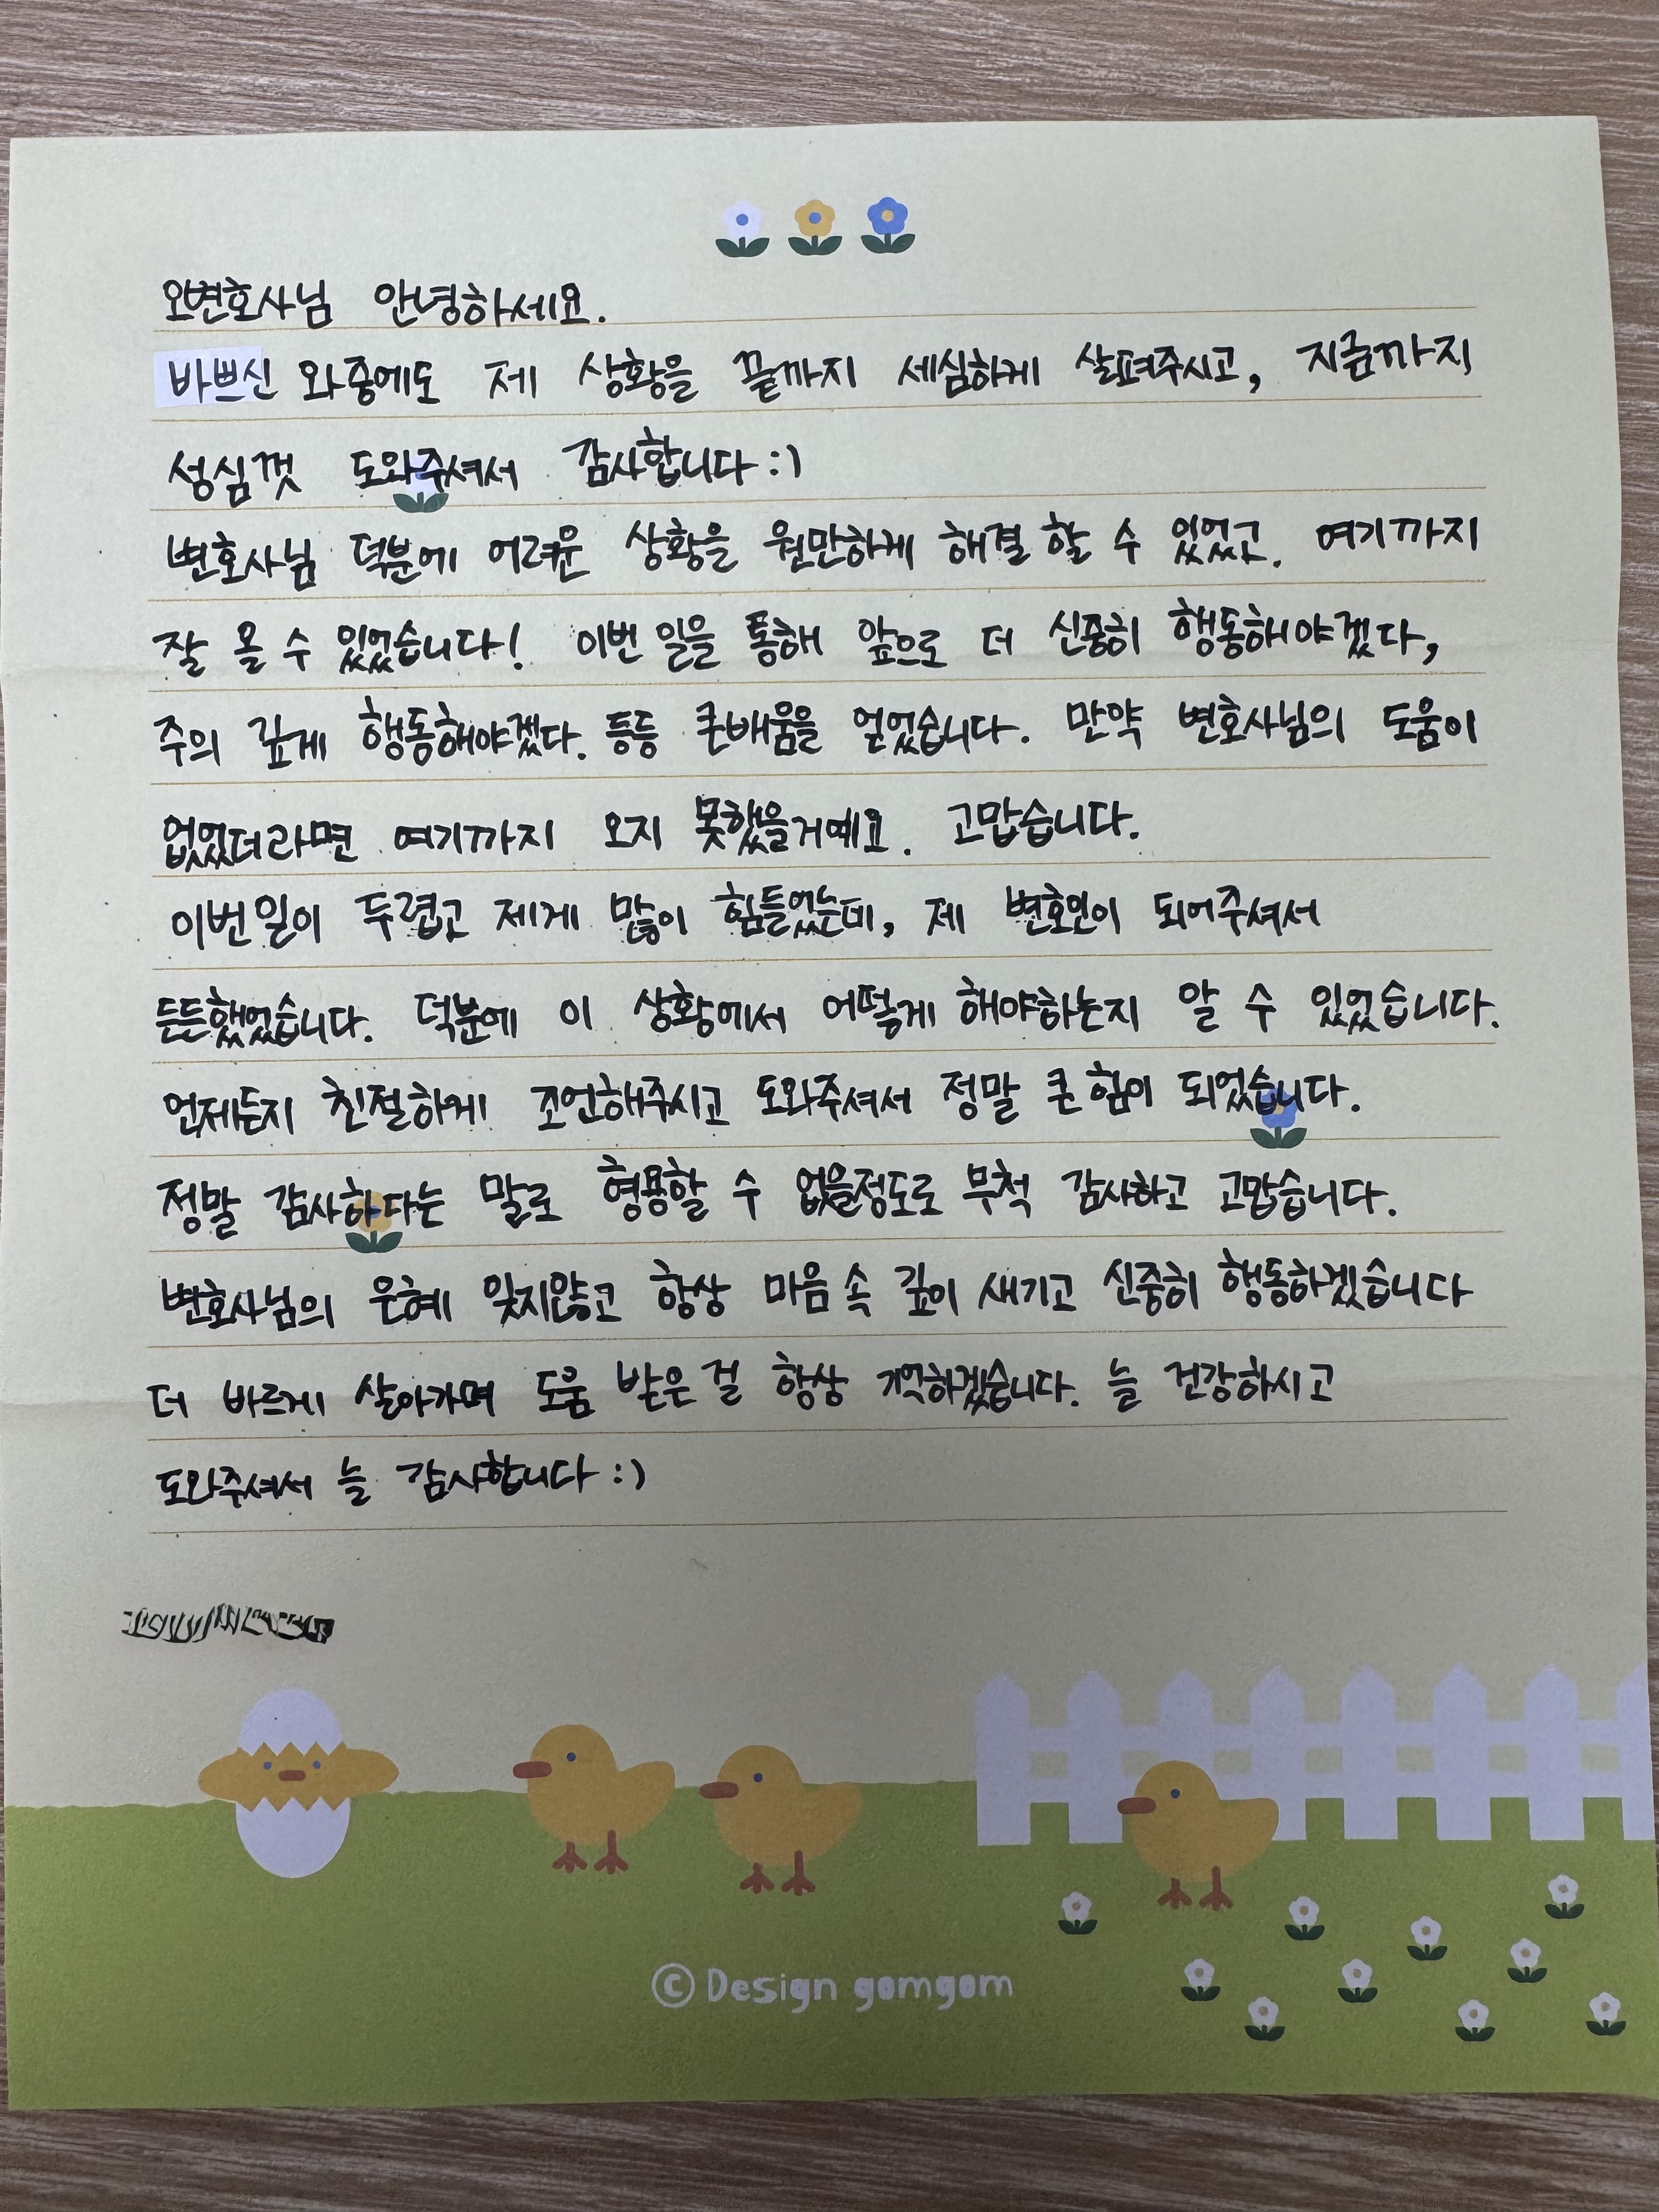 오변호사님 안녕하세요.
바쁘신 와중에도 제 상황을 끝까지 세심하게 살펴주시고, 지금까지
성심껏 도와주셔서 감사합니다 :)
변호사님 덕분에 어려운 상황을 원만하게 해결 할 수 있었고. 여기까지
잘 올 수 있었습니다! 이번 일을 통해 앞으로 더 신중히 행동해야겠다,
주의 깊게 행동해야겠다. 등등 큰배움을 얻었습니다. 만약 변호사님의 도움이
없었더라면 여기까지 오지 못했을거예요. 고맙습니다.
이번일이 두렵고 제게 많이 힘들었는데, 제 변호인이 되어주셔서
든든했었습니다. 덕분에 이 상황에서 어떻게 해야하는지 알 수 있었습니다.
언제든지 친절하게 조언해주시고 도와주셔서 정말 큰 힘이 되었습니다.
정말 감사하다는 말로 형용할 수 없을정도로 무척 감사하고 고맙습니다.
변호사님의 은혜 잊지않고 항상 마음 속 깊이 새기고 신중히 행동하겠습니다
더 바르게 살아가며 도움 받은 걸 항상 기억하겠습니다. 늘 건강하시고
도와주셔서 늘 감사합니다 :)
© Design gomgom